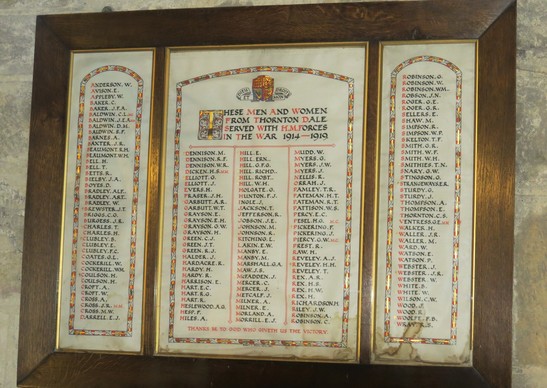 ANDERSON. W.
AVISON. E.
APPLEBY. W.
BAKER. C.
BAKER. J.F.A.
BALDWIN. C.L.
BALDWIN. J.E.A.
BALDWIN. D.M.
BALDWIN. R.F.
BARNES. A.
BAXTER. J.
BEAUMONT. R.H.
BEAUMONT. W.H.
BELL. H.
BELL. T.
BETTS. R.
BIELBY. J.A.
BOYES. D.
BRADLEY. ALF.
BRADLEY. ART.
BRADLEY. W.
BREWSTER. J.T.
BRIGGS. C.O.
BURGESS. J.R.
CHARLES. T.
CHARLES. H.
CLUBLEY. S.
CLUBLEY. E.
CLUBLEY. F.
COATES. G.L.
COCKERILL. W.
COCKERILL. WM.
COULSON. H.
COULSON. D.
CROFT. A.
CROFT. W.
CROSS. A.
CROSS. J.R.
CROSS. M.W.
DARRELL. E.J.
THESE MEN AND WOMEN
FROM THORNTON DALE
SERVED WITH H.M. FORCES
IN THE WAR 1914–1919
DENNISON. M.
DENNISON. R.F.
DENNISON. W.R.
DICKEN. H.S.
ELLIOTT. G.
ELLIOTT. J.
EVERS. H.
FRASER. J.H.
GARBUTT. A.R.
GARBUTT. W.T.
GRAYSON. E.
GRAYSON. E.H.
GRAYSON. G.W.
GRAYSON. H.
GREEN. C.J.
GREEN. J.T.
GREEN. R.J.
HALDER. J.
HARDACRE. R.
HARDY. H.
HARDY. R.
HARRISON. E.
HART. E.C.
HART. R.G.
HART. R.
HESLEWOOD. A.G.
HESP. F.
HILES. A.
HILL. E.
HILL. ERK.
HILL. O.F.G.
HILL. RICHD.
HILL. ROBT.
HILL. W.H.
HOLGATE. G.
HUNTON. F.J.
INGLE. J.
JACKSON. T.
JEFFERSON. R.
JOBSON. J.E.
JOHNSON. M.
JOHNSON. R.
KITCHING. E.
LAKIN. E.W.
MANBY. E.
MANBY. M.
MARSHALL. G.A.
MAW. J.B.
McFADDEN. J.
MERCER. C.
MERCER. J.
METCALF. J.
MILNER. A.
MILNER. E.
MORLAND. A.
MORRILL. E.J.
MUDD. W.
MYERS. G.
MYERS. J.W.
MYERS. J.
NELLIS. R.
ORRAH. J.
PAMLEY. T.R.
PATEMAN. H.T.
PATEMAN. R.T.
PATTISON. W.S.
PERCY. E.C.
PESEL. H.G.
PICKERING. F.
PICKERING. J.
PIERCY. G.O.
PREST. R.
RAW. H.
REVELEY. A.J.
REVELEY. H.M.
REVELEY. T.
REX. A.R.
REX. H.S.
REX. H.W.
REX. H.
RICHARDSON. H.
RILEY. J.W.
ROBINSON. A.
ROBINSON. C.
THANKS BE TO GOD WHO GIVETH US THE VICTORY
ROBINSON. G.
ROBINSON. W.
ROBINSON. WM.
ROBSON. J.N.
ROGER. G.E.
ROGER. G.R.
SELLERS. E.
SHAW. M.
SIMPSON. R.
SIMPSON. W.P.
SKELTON. T.F.
SMITH. G.R.
SMITH. W.F.
SMITH. W.H.
SMITHIES. T.N.
SNARY. G.W.
STINGSON. G.
STRANGEWAYS. E.R.
STURDY. G.
STURDY. J.
THOMPSON. A.
THOMPSON. E.
THORNTON. C.S.
VENTRESS. G.E.
WALKER. H.
WALLER. J.R.
WALLER. M.
WARD. W.
WATSON. E.
WATSON. P.
WEBSTER. J.
WEBSTER. J.R.
WEBSTER. W.
WHITE. B.
WHITE. W.
WILSON. C.W.
WOOD. J.
WOOD. R.
WOOLFE. F.B.